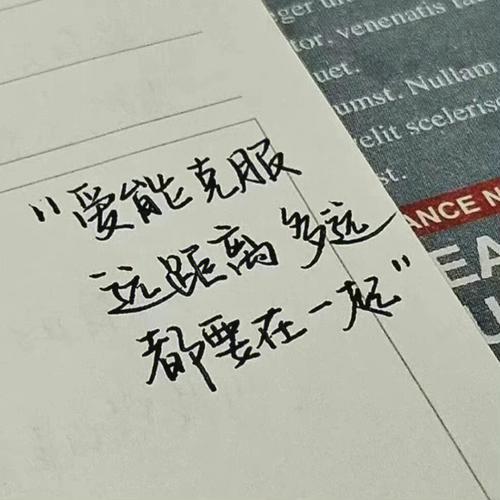 "爱能克服
远距离多远
都要在一起"
tor, venenatis
uet.
umst. Nullam
elit sceleris
st.
ANCE N
EA
U